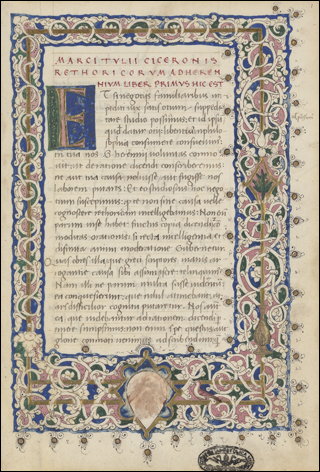 MARCI TVLII CICERONIS
RETHORICORVM AD HEREN
NIVM LIBER PRIMVS HIC EST
Tsi negotiis familiaribus im
pediti vix satis otium suppedi
tare studio possumus et id ipsum
quod datur otii libentius in philo
sophia consumere
tua nos voluntas commo
vit ut de ratione dicendi conscriberemus
ne aut tua causa noluisse aut fugisse nos
laborem putares. Et eo studiosius hoc nego
cium suscepimus non sine causa velle
cognoscere rethoricam intelligebamus. Non
parum in se habet fructus copia dicendi
moditas orationis si recta intelligentia et
difinita animi moderatione
illa que greci scriptores inanis ar
rogantie causa sibi assumpsere relinquimus
Nam illi ne parum multa scisse viderentur
ea conquesierunt que nihil attinebant ut
ars difficilior cognitu putaretur. Nos autem
ea que videbantur ad rationem dicendi perti
nere sumpsimus non enim spe questus aut
gloria commoti venimus ad scribendum